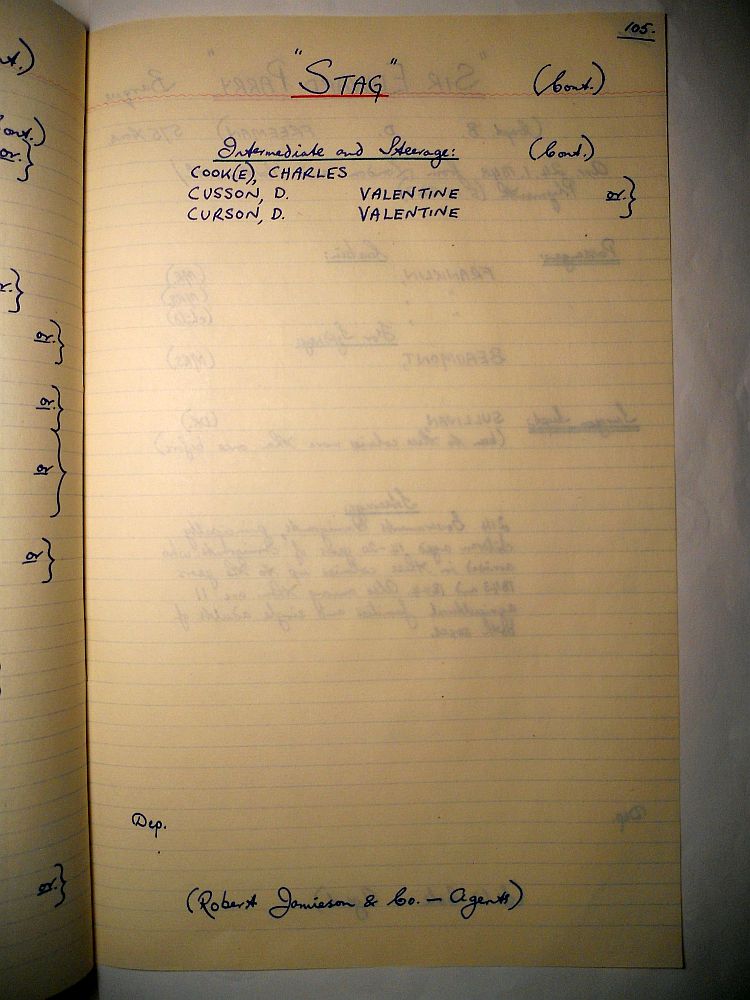 105.
"STAG" (Cont.)
Intermediate and Steerage: (Cont.)
COOK(E), CHARLES
CUSSON, D. VALENTINE or.}
CURSON, D. VALENTINE
Dep.
(Robert Jamieson & Co. — Agents)